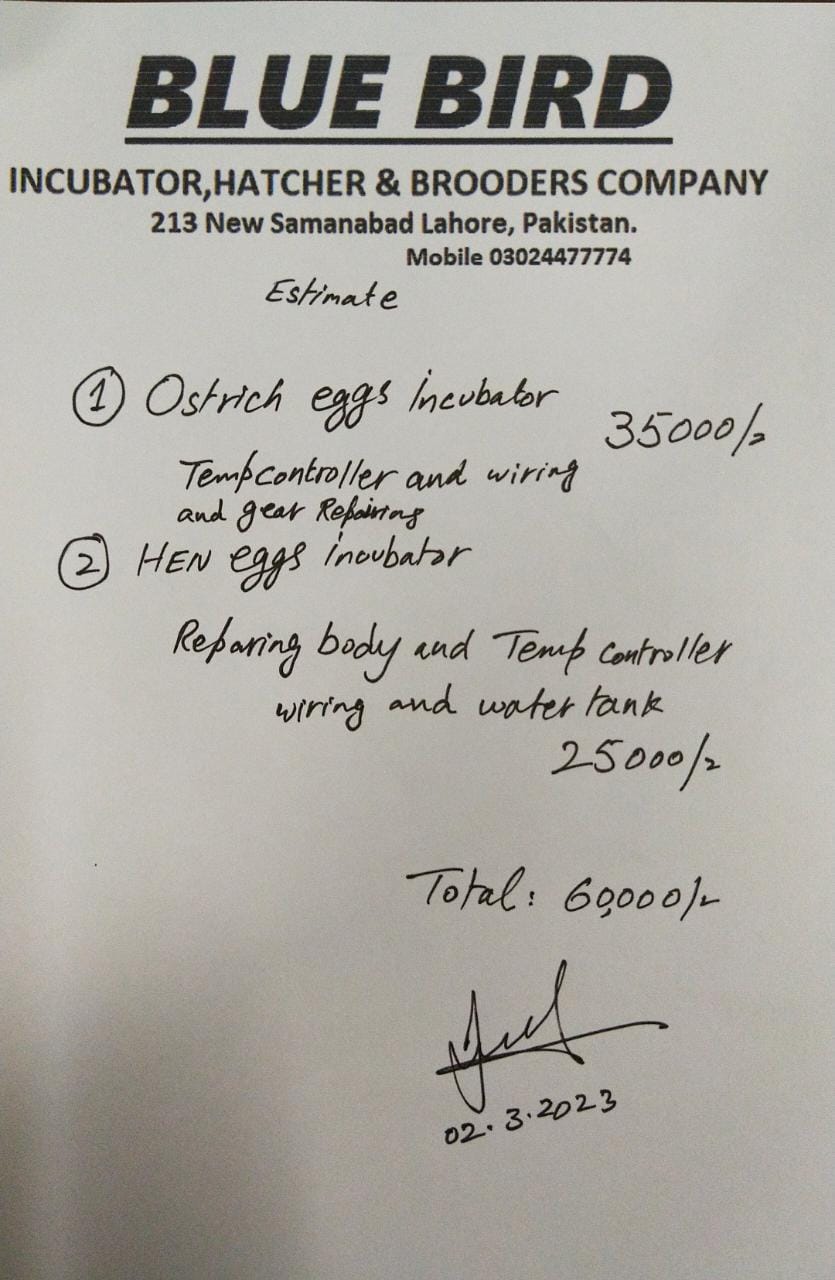 BLUE BIRD
INCUBATOR,HATCHER & BROODERS COMPANY
213 New Samanabad Lahore, Pakistan.
Mobile 03024477774
Estimate
① Ostrich eggs incubator
35000/-
Temp controller and wiring
and gear Repairing
② HEN eggs incubator
Reparing body and Temp controller
wiring and water tank
25000/-
Total: 60,000/-
02.3.2023